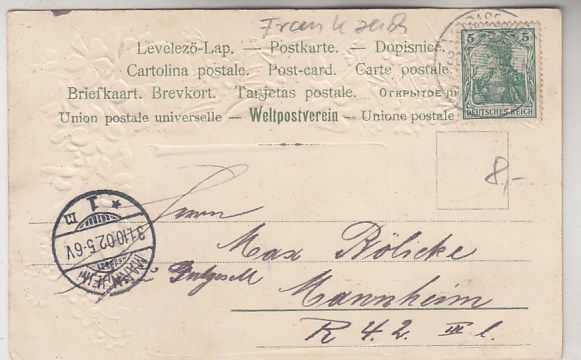 Levelező-Lap. — Postkarte. — Dopisnice.
Cartolina postale. Post-card. Carte postale.
Briefkaart. Brevkort. Tarjetas postale. Открытое
Union postale universelle — Weltpostverein — Unione postale
5 5
DEUTSCHES REICH
8,-
* 1 m
31.10.02.5-6V.
MANNHEIM
Herrn
Max Bölicke
Mannheim
R 4. 2. III l.